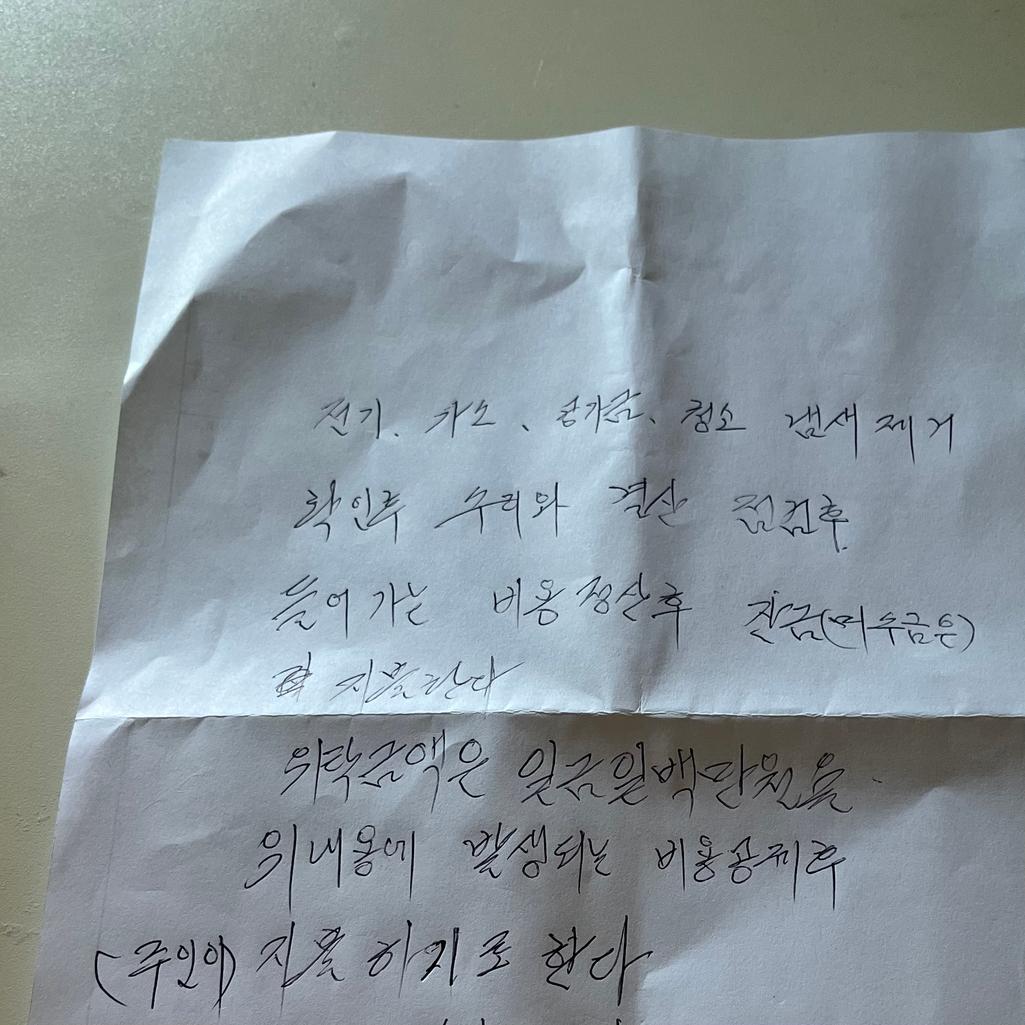 전기. 가스, 공가금, 청소 냄새 제거
확인후 수리와 결산 점검후
들어가는 비용 정산후 잔금(미수금은)
지불한다
위탁금액은 일금일백만원을.
위내용에 발생되는 비용공제후
(주인이) 지불 하기로 한다